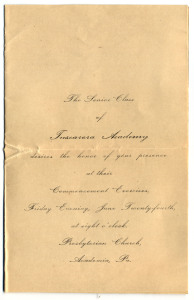 The Senior Class
of
Tuscarora Academy
desires the honor of your presence
at their
Commencement Exercises,
Friday Evening, June Twenty-fourth,
at eight o'clock,
Presbyterian Church,
Academia, Pa.